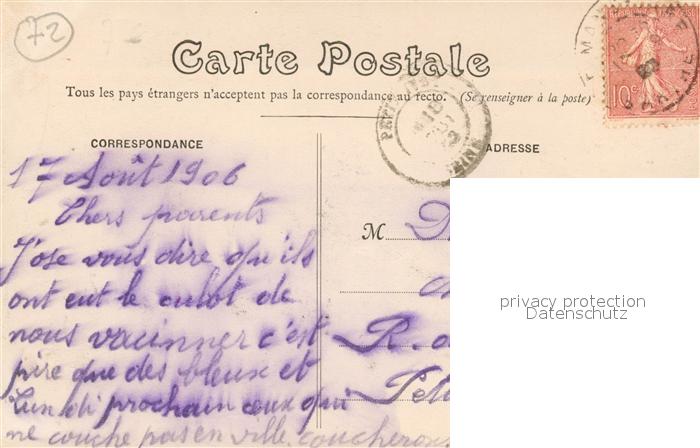 72
Carte Postale
Tous les pays étrangers n'acceptent pas la correspondance au recto. (Se renseigner à la poste)
10c
CORRESPONDANCE
ADRESSE
17 Août 1906
Chers parents
J'ose vous dire qu'ils
ont eut le culot de
nous vacinner c'est
pire que des bleux et
Lundi prochain ceux qui
ne couche pas en ville coucherons
M
R. d
privacy protection
Datenschutz